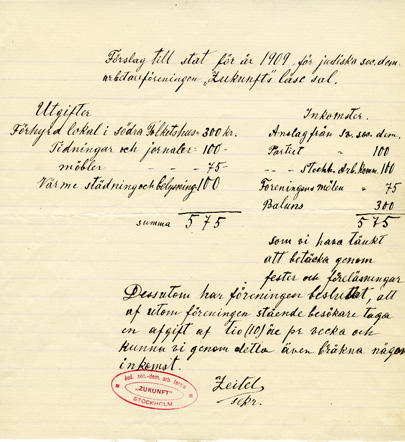 Förslag till stat för år 1909 för judiska soc. dem.
arbetareföreningen "Zukunft's" läse sal.
Utgifter
Förhyrd lokal i södra Folketshus = 300 kr.
Tidningar och jornaler = 100 -
möbler - - - - 75 -
Värme städning och belysning 100
summa 575
Inkomster.
Anslag från sv. soc. dem.
Partiet " 100
- - - Stockh. arb. komm. 100
Föreningens möten " 75
Balans 300
575
som vi hava tänkt
att betäcka genom
fester och föreläsningar
Dessutom har föreningen beslutat, att
af utom föreningen stående besökare taga
en afgift af tio (10) öre pr vecka och
kunna vi genom detta även bräkna någon
inkomst.
Zeitel
sekr.
Jud. soc.-dem. arb. fören.
"ZUKUNFT"
STOCKHOLM.